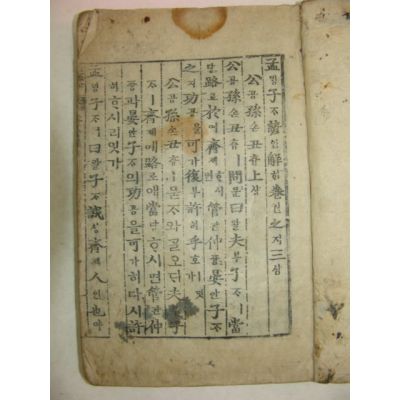 孟ᄆᆡᆼ子ᄌᆞ諺언解ᄒᆡ卷권之지三삼
公공孫손丑츄上샹
公공孫손丑츄ㅣ問문曰왈夫부子ᄌᆞㅣ當
당路로於어齊졔ᄒᆞ시면管관仲듕晏안子ᄌᆞ
之지功공을可가復부許허乎호ㅣ잇
가
公공孫손丑츄ㅣ묻ᄌᆞ와ᄀᆞᆯ오ᄃᆡ夫부子ᄌᆞ
ㅣ齊졔예路로애當당ᄒᆞ시면管관仲
듕과晏안子ᄌᆞ의功공을可가히다시許
허ᄒᆞ시리잇가
孟ᄆᆡᆼ子ᄌᆞㅣ曰왈子ᄌᆞㅣ誠셩齊졔人인也야